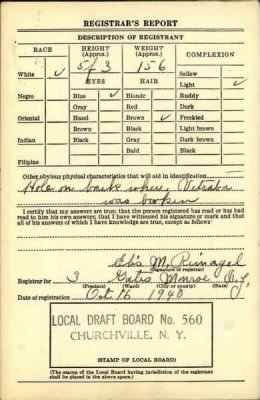 REGISTRAR'S REPORT
DESCRIPTION OF REGISTRANT
RACE HEIGHT (Approx.) WEIGHT (Approx.) COMPLEXION
White ✓ 5 ft 3 156 Sallow
EYES HAIR Light ✓
Negro Blue ✓ Blonde Ruddy
Gray Red Dark
Oriental Hazel Brown ✓ Freckled
Brown Black Light brown
Indian Black Gray Dark brown
Bald Black
Filipino
Other obvious physical characteristic that will aid in identification
Hole on back where
was broken
I certify that my answers are true; that the person registered has read or has had
read to him his own answers; that I have witnessed his signature or mark and that
all of his answers of which I have knowledge are true, except as follows:
M.
(Signature of registrar)
Registrar for 3 Gates Monroe N.Y.
(Precinct) (Ward) (City or county) (State)
Date of registration Oct. 16 1940
LOCAL DRAFT BOARD No. 560
CHURCHVILLE, N. Y.
(STAMP OF LOCAL BOARD)
(The stamp of the Local Board having jurisdiction of the registrant
shall be placed in the above space.)